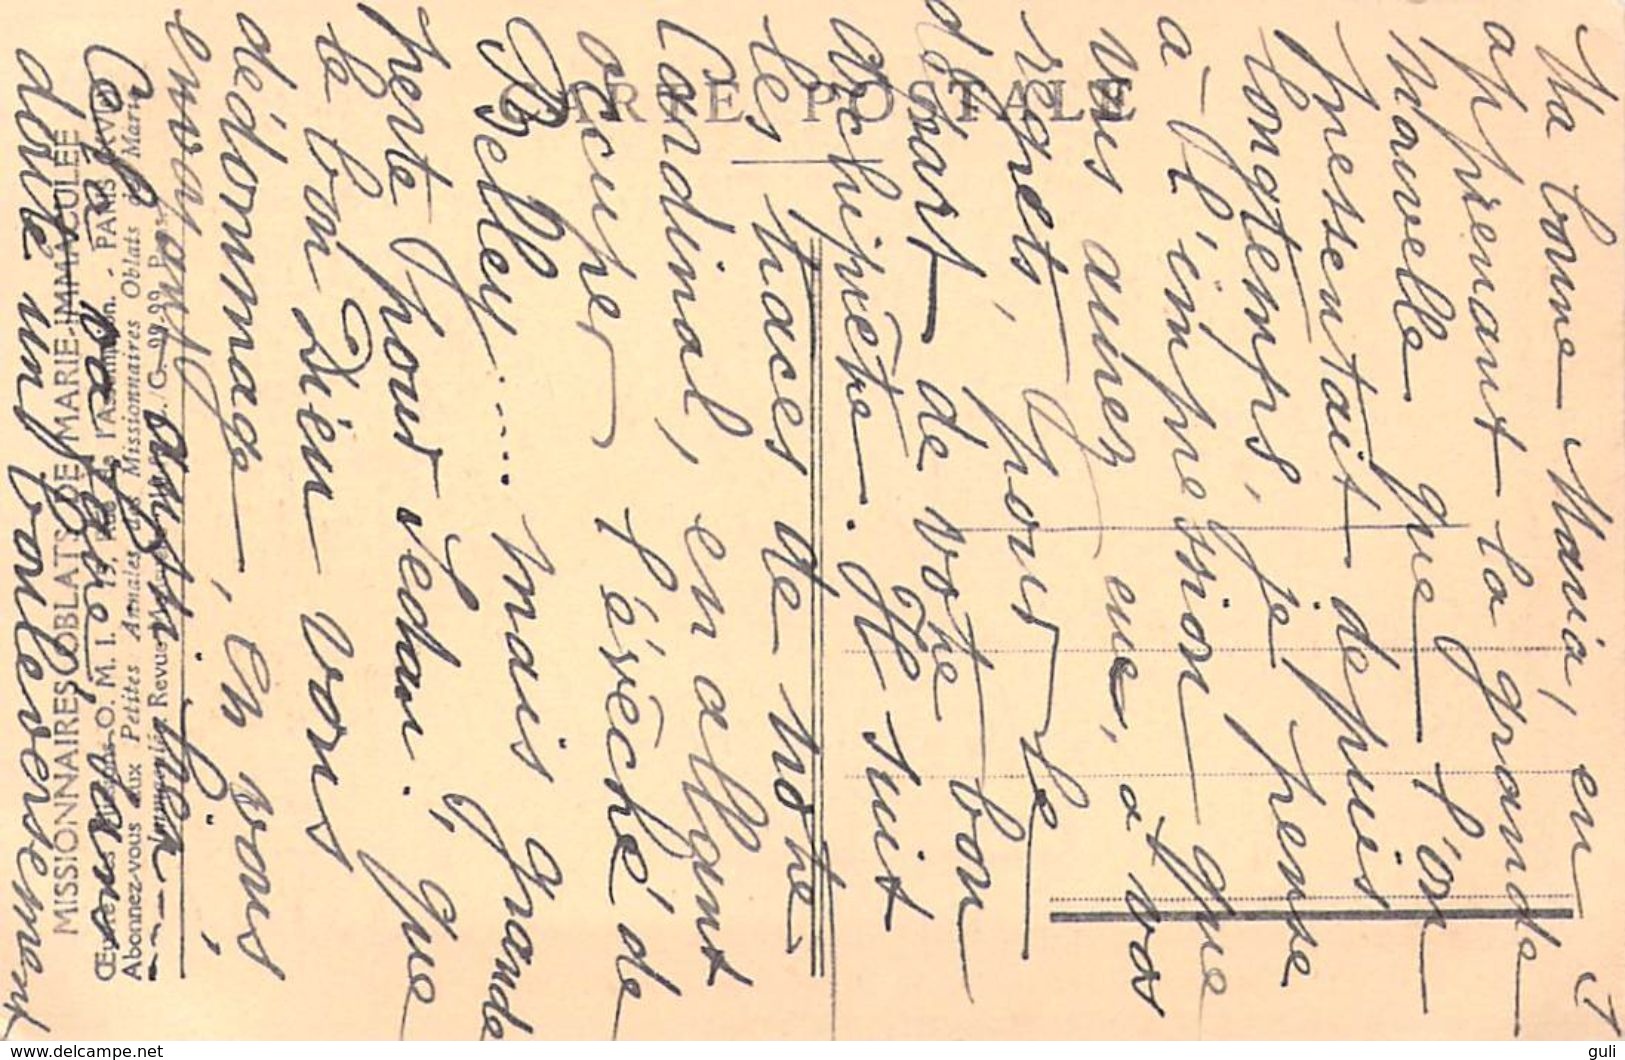 Ma bonne Maria, en
apprenant la grande
nouvelle que l'on
pressentait depuis
longtemps, je pense
à l'impression que
vous aurez eue, et vos
regrets, pour le
départ de votre bon
Archiprêtre. Il suit
les traces de notre
Cardinal, en allant
occuper l'évêché de
Belley.... mais grande
perte pour Sedan! que
le bon Dieu vous
dédommage, en vous
envoyant aussi bien
Cela va faire sans
doute un bouleversement
CARTE POSTALE
MISSIONNAIRES OBLATS DE MARIE IMMACULÉE
Œuvres O. M. I. - 15, Rue de l'Assomption. - PARIS
Abonnez-vous aux Petites Annales des Missionnaires Oblats de Marie
Immaculée Revue
delcampe.net
guli